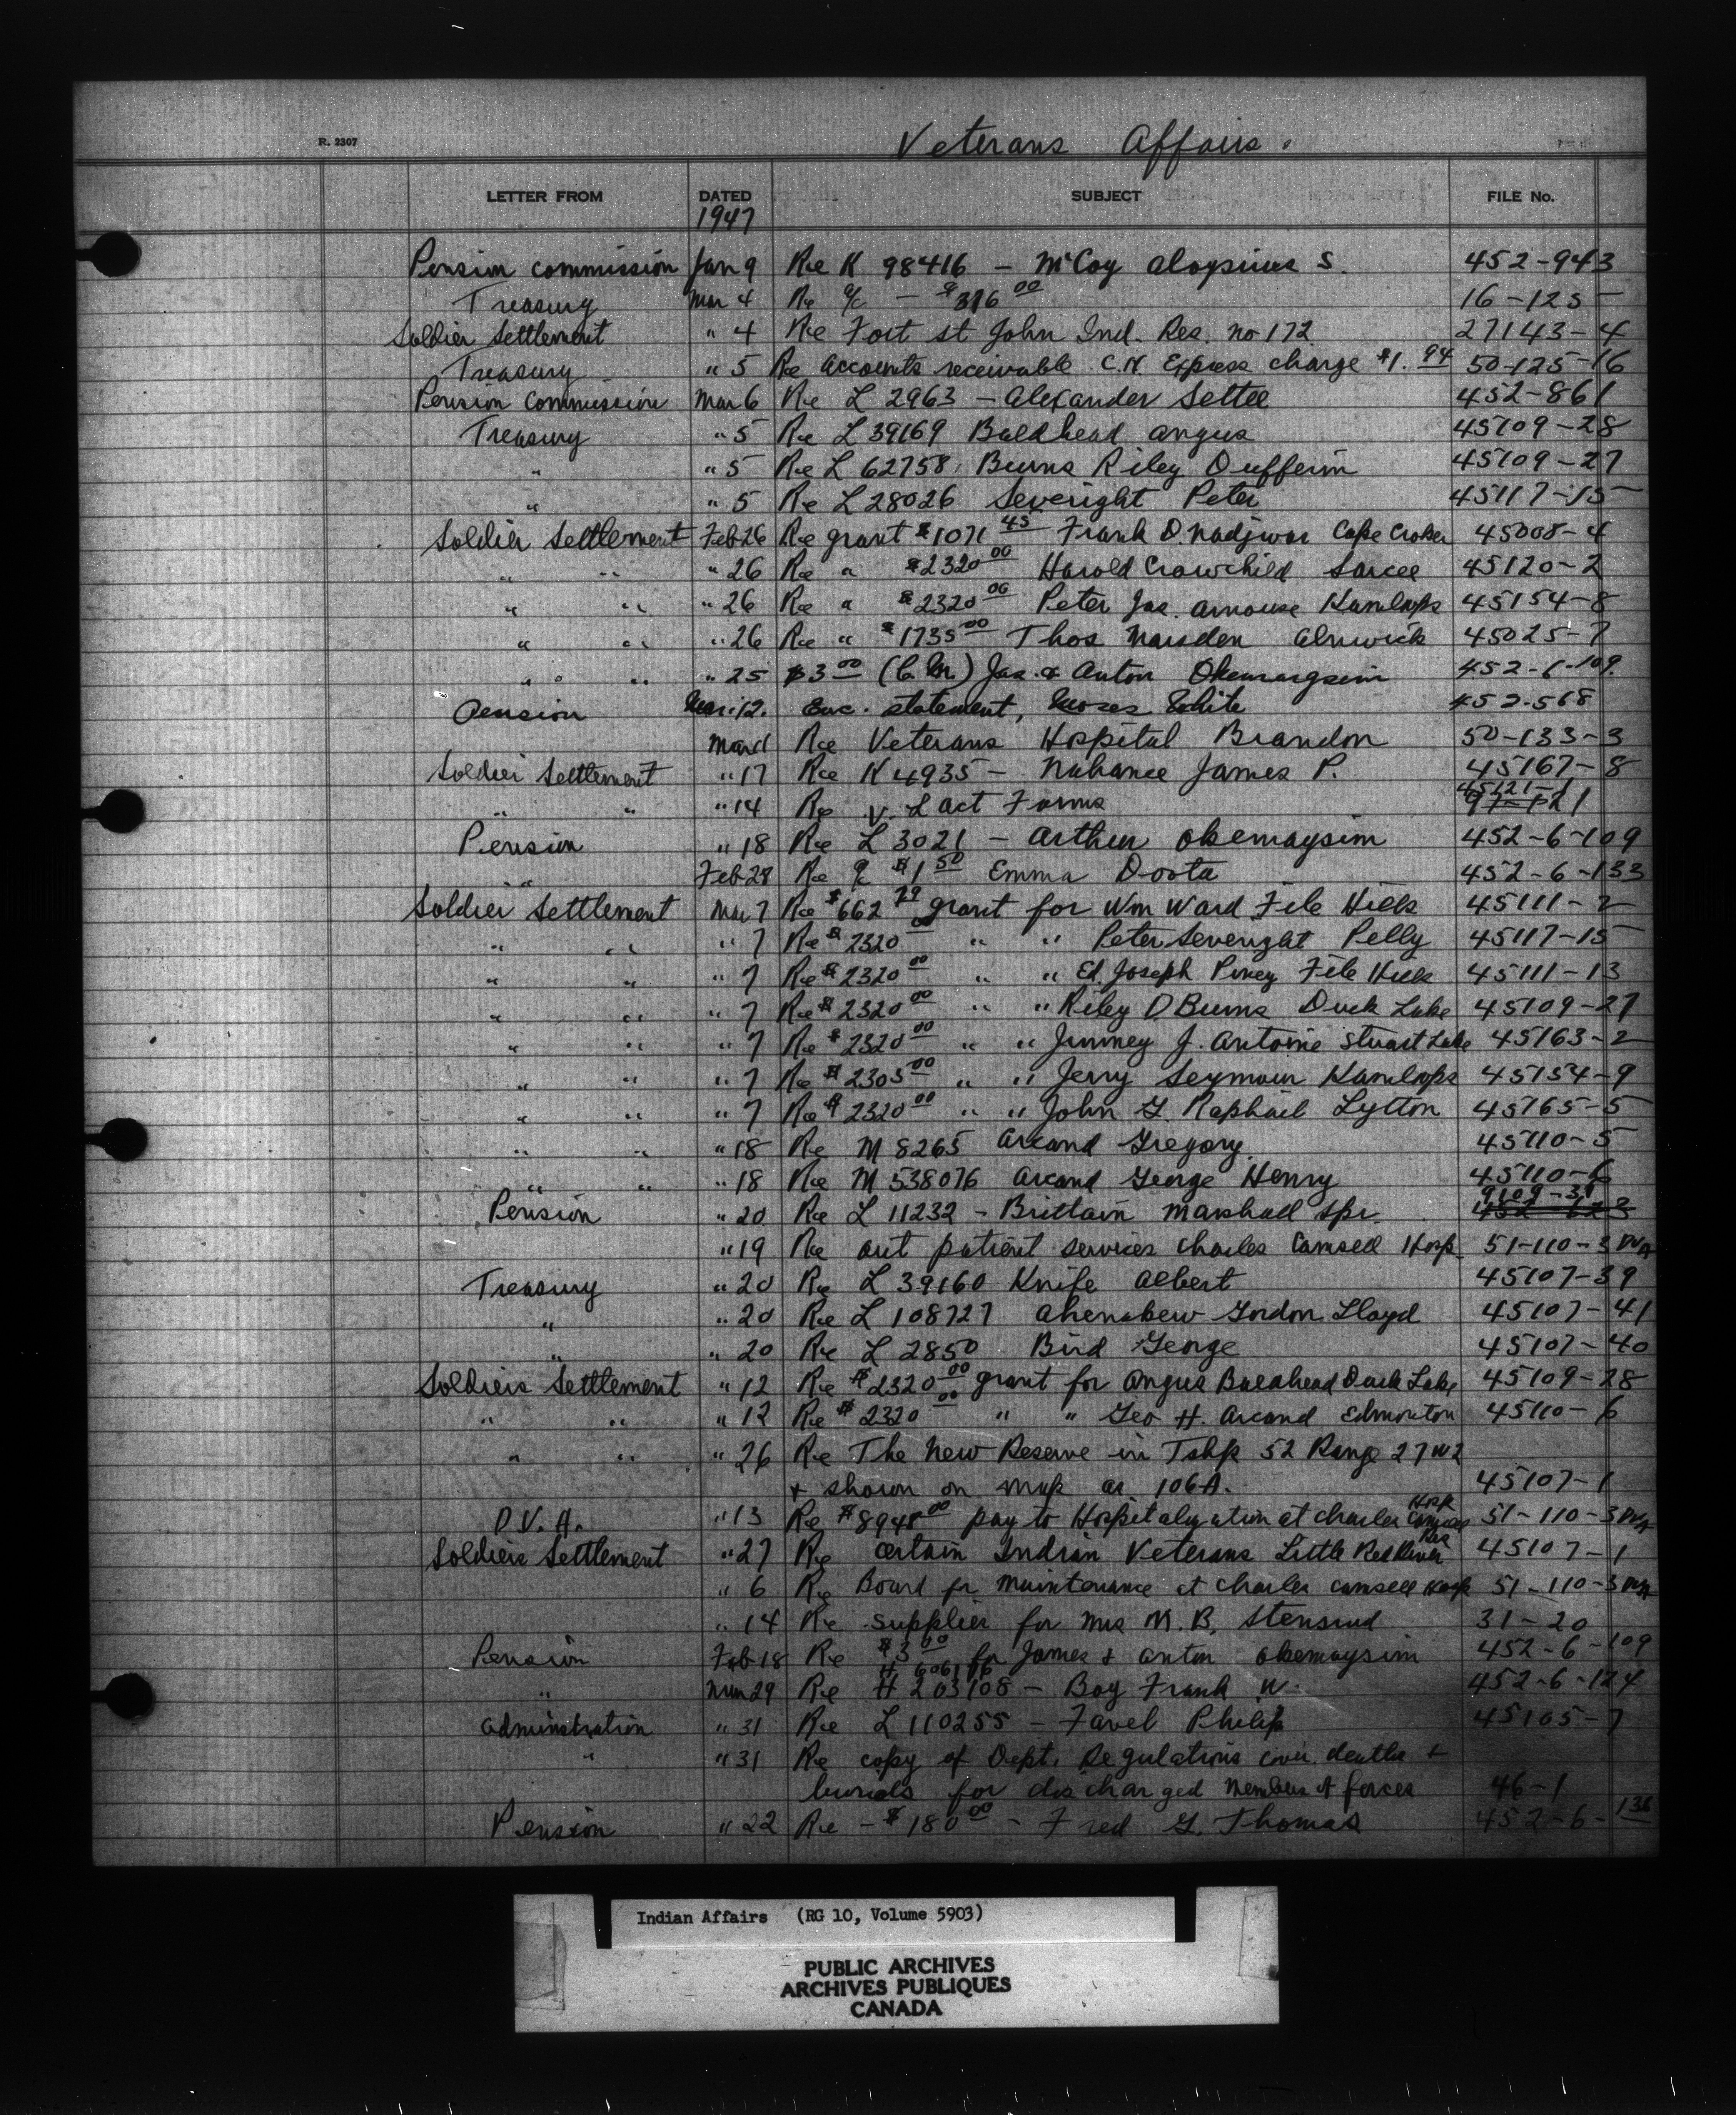 Veterans Affairs.
R. 2307
LETTER FROM DATED SUBJECT FILE No.
1947
Pension Commission Jan 9 Re K 98416 — McCoy Aloysius S. 452-943
Treasury Mar 4 Re a/c — $316 00 16-125
Soldier Settlement " 4 Re Fort St John Ind. Res. No 172 27143-4
Treasury " 5 Re Accounts receivable C.N. Express charge $1.94 50-125-16
Pension Commission Mar 6 Re L 2963 — Alexander Settee 452-861
Treasury " 5 Re L 39169 Baldhead Angus 45109-28
" " 5 Re L 62758 Burns Riley Dufferin 45109-27
" " 5 Re L 28026 Severight Peter 45117-15
Soldier Settlement Feb 26 Re grant $1071 45 Frank D. Nadjiwon Cape Croker 45008-4
" " " 26 Re " $2320 00 Harold Crowchild Sarcee 45120-2
" " " 26 Re " $2320 00 Peter Jas. Arnouse Kamloops 45154-8
" " " 26 Re " $1735 00 Thos Marsden Alnwick 45025-7
" " " 25 $3 00 (C.M.) Jas. & Anton 452-6-109
Pension Mar. 12. Enc. statement, Moses White 452-568
Mar 11 Re Veterans Hospital Brandon 50-133-3
Soldier Settlement " 17 Re K 4935 — Nahanee James P. 45167-8
45121-1
" " " 14 Re V. L Act Forms
Pension " 18 Re L 3021 — Arthur Okemaysim 452-6-109
" Feb 28 Re a/c $1 50 Emma 452-6-133
Soldier Settlement Mar 7 Re $662 29 grant for Wm Ward File Hills 45111-2
" " " 7 Re $2320 00 " " Peter Severight Pelly 45117-15
" " " 7 Re $2320 00 " " Ed. Joseph Pinay File Hills 45111-13
" " " 7 Re $2320 00 " " Riley D Burns Duck Lake 45109-27
" " " 7 Re $2320 00 " " Jimmey J. Antoine Stuart Lake 45163-2
" " " 7 Re $2305 00 " " Jerry Seymour Kamloops 45154-9
" " " 7 Re $2320 00 " " John G. Raphael Lytton 45165-5
" " " 18 Re M 8265 Arcand Gregory 45110-5
" " " 18 Re M 538076 Arcand George Henry 45110-6
9109-31
Pension " 20 Re L 11232 — Brittain Marshall Spr. 452-623
" 19 Re out patient services Charles Camsell Hosp. 51-110-3 DVA
Treasury " 20 Re L 39160 Knife Albert 45107-39
" " 20 Re L 108727 Ahenakew Gordon Lloyd 45107-41
" " 20 Re L 2850 Bird George 45107-40
Soldiers Settlement " 12 Re $2320 00 grant for Angus Baldhead Duck Lake 45109-28
" " " 12 Re $2320 00 " " Geo H. Arcand Edmonton 45110-6
" " " 26 Re The New Reserve in Tshp 52 Range 27 W2
& shown on map as 106A. 45107-1
D.V.A. " 13 Re $8941 00 pay to Hospitalization at Charles Camsell Hosp 51-110-3 DVA
Soldiers Settlement " 27 Re certain Indian Veterans Little Red River Res 45107-1
" 6 Re Board for Maintenance at Charles Camsell Hosp 51-110-3 DVA
" 14 Re supplies for Mrs M. B. Stensrud 31-20
Pension Feb 18 Re $3 00 for James & Anton Okemaysim 452-6-109
" Mar 29 Re H 203108 — Boy Frank W. 452-6-124
Administration " 31 Re L 110255 — Favel Philip 45105-7
" " 31 Re copy of Dept. Regulations cover. deaths &
burials for discharged members of forces 46-1
Pension " 22 Re — $180 00 — Fred G. Thomas 452-6-136
Indian Affairs (RG 10, Volume 5903)
PUBLIC ARCHIVES
ARCHIVES PUBLIQUES
CANADA